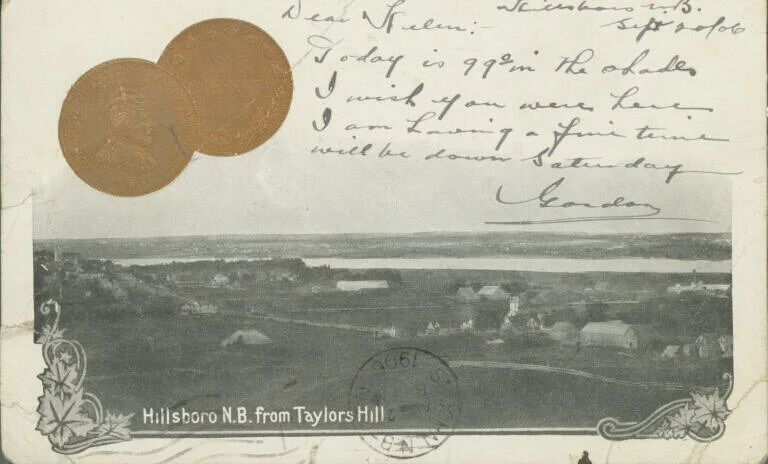 Hillsboro N.B.
Sept 20/06
Dear Helen:-
Today is 99° in the shade
I wish you were here
I am having a fine time
will be down Saturday
Gordon
Hillsboro N.B. from Taylors Hill
1906
N.B.